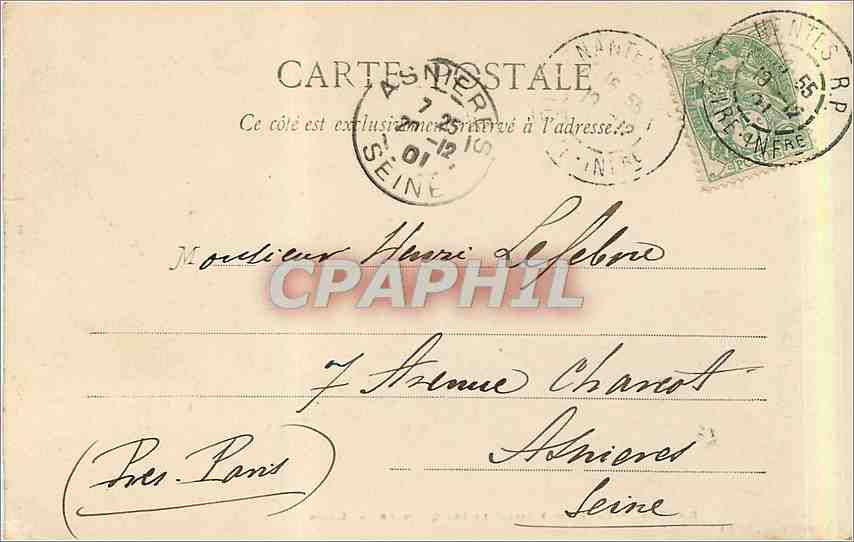 CARTE POSTALE
Ce côté est exclusivement réservé à l'adresse
ASNIERES
7 25
12
01
SEINE
NANTES
NANTES R.P.
55
19 12
01
LOIRE-INFRE
Monsieur Henri Lefebvre
CPAPHIL
7 Avenue Charcot
Asnieres
(Pres-Paris)
Seine